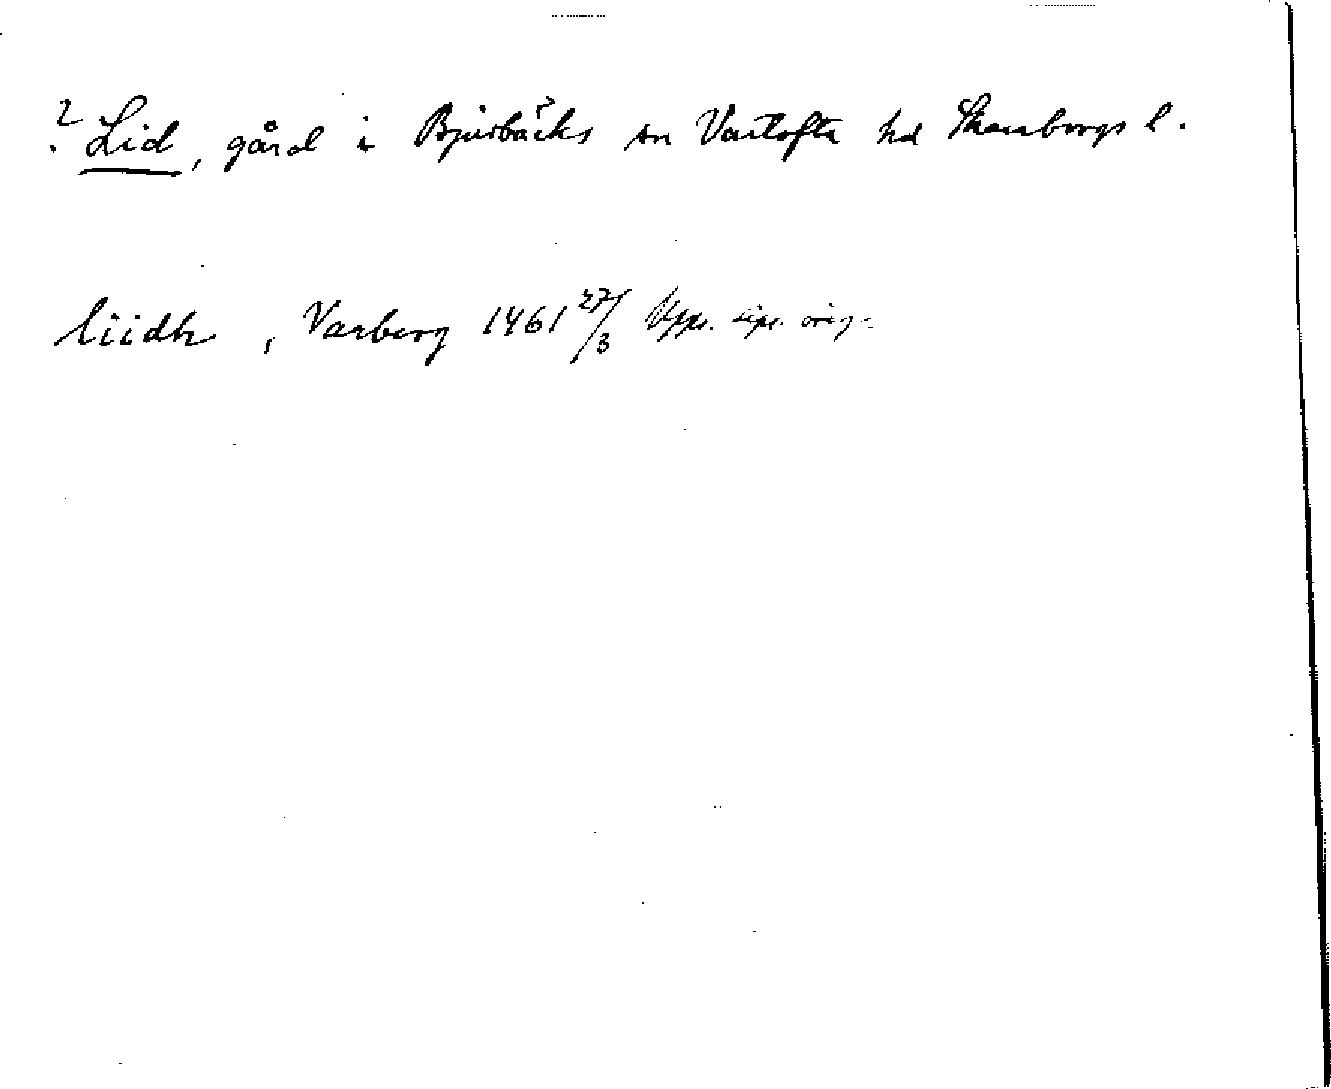 ? Lid, gård i Bjurbäcks sn Vartofta hd Skaraborgs l.
liidh, Varberg 1461 27/3 Upps. dipl. orig.